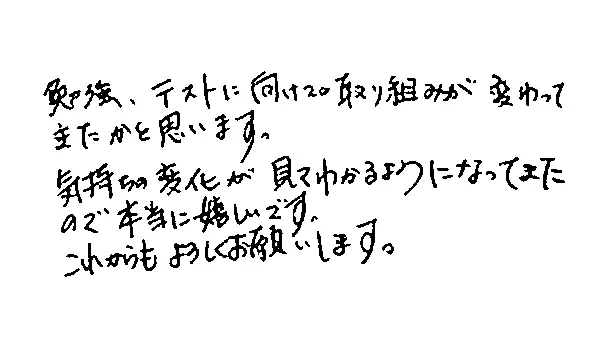 勉強、テストに向けての取り組みが変わって
きたかと思います。
気持ちの変化が見てわかるようになってきた
ので本当に嬉しいです。
これからもよろしくお願いします。